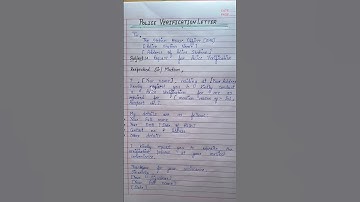 POLICE VERIFICATION LETTER
To,
The Station House Officer (SHO)
[ Police Station Name ]
[ Address of Police Station ]
Subject :- Request for Police Verification
Respected Sir/ Madam,
I, [ Your Name ], residing at [ Your Address ]
Kindly request you to kindly conduct
a Police Verification for me as
required for [ mention reason e.g. Job,
Passport etc ]
My details are as follows :
Your Full name
Your DOB [ Date of Birth ]
Contact no. & Address
Other details
I kindly request you to complete the
verification process at your earliest
convenience.
Thankyou for your assistance.
Sincerely
[ Your Signature ]
[ Your Full name ]
[ Date ]